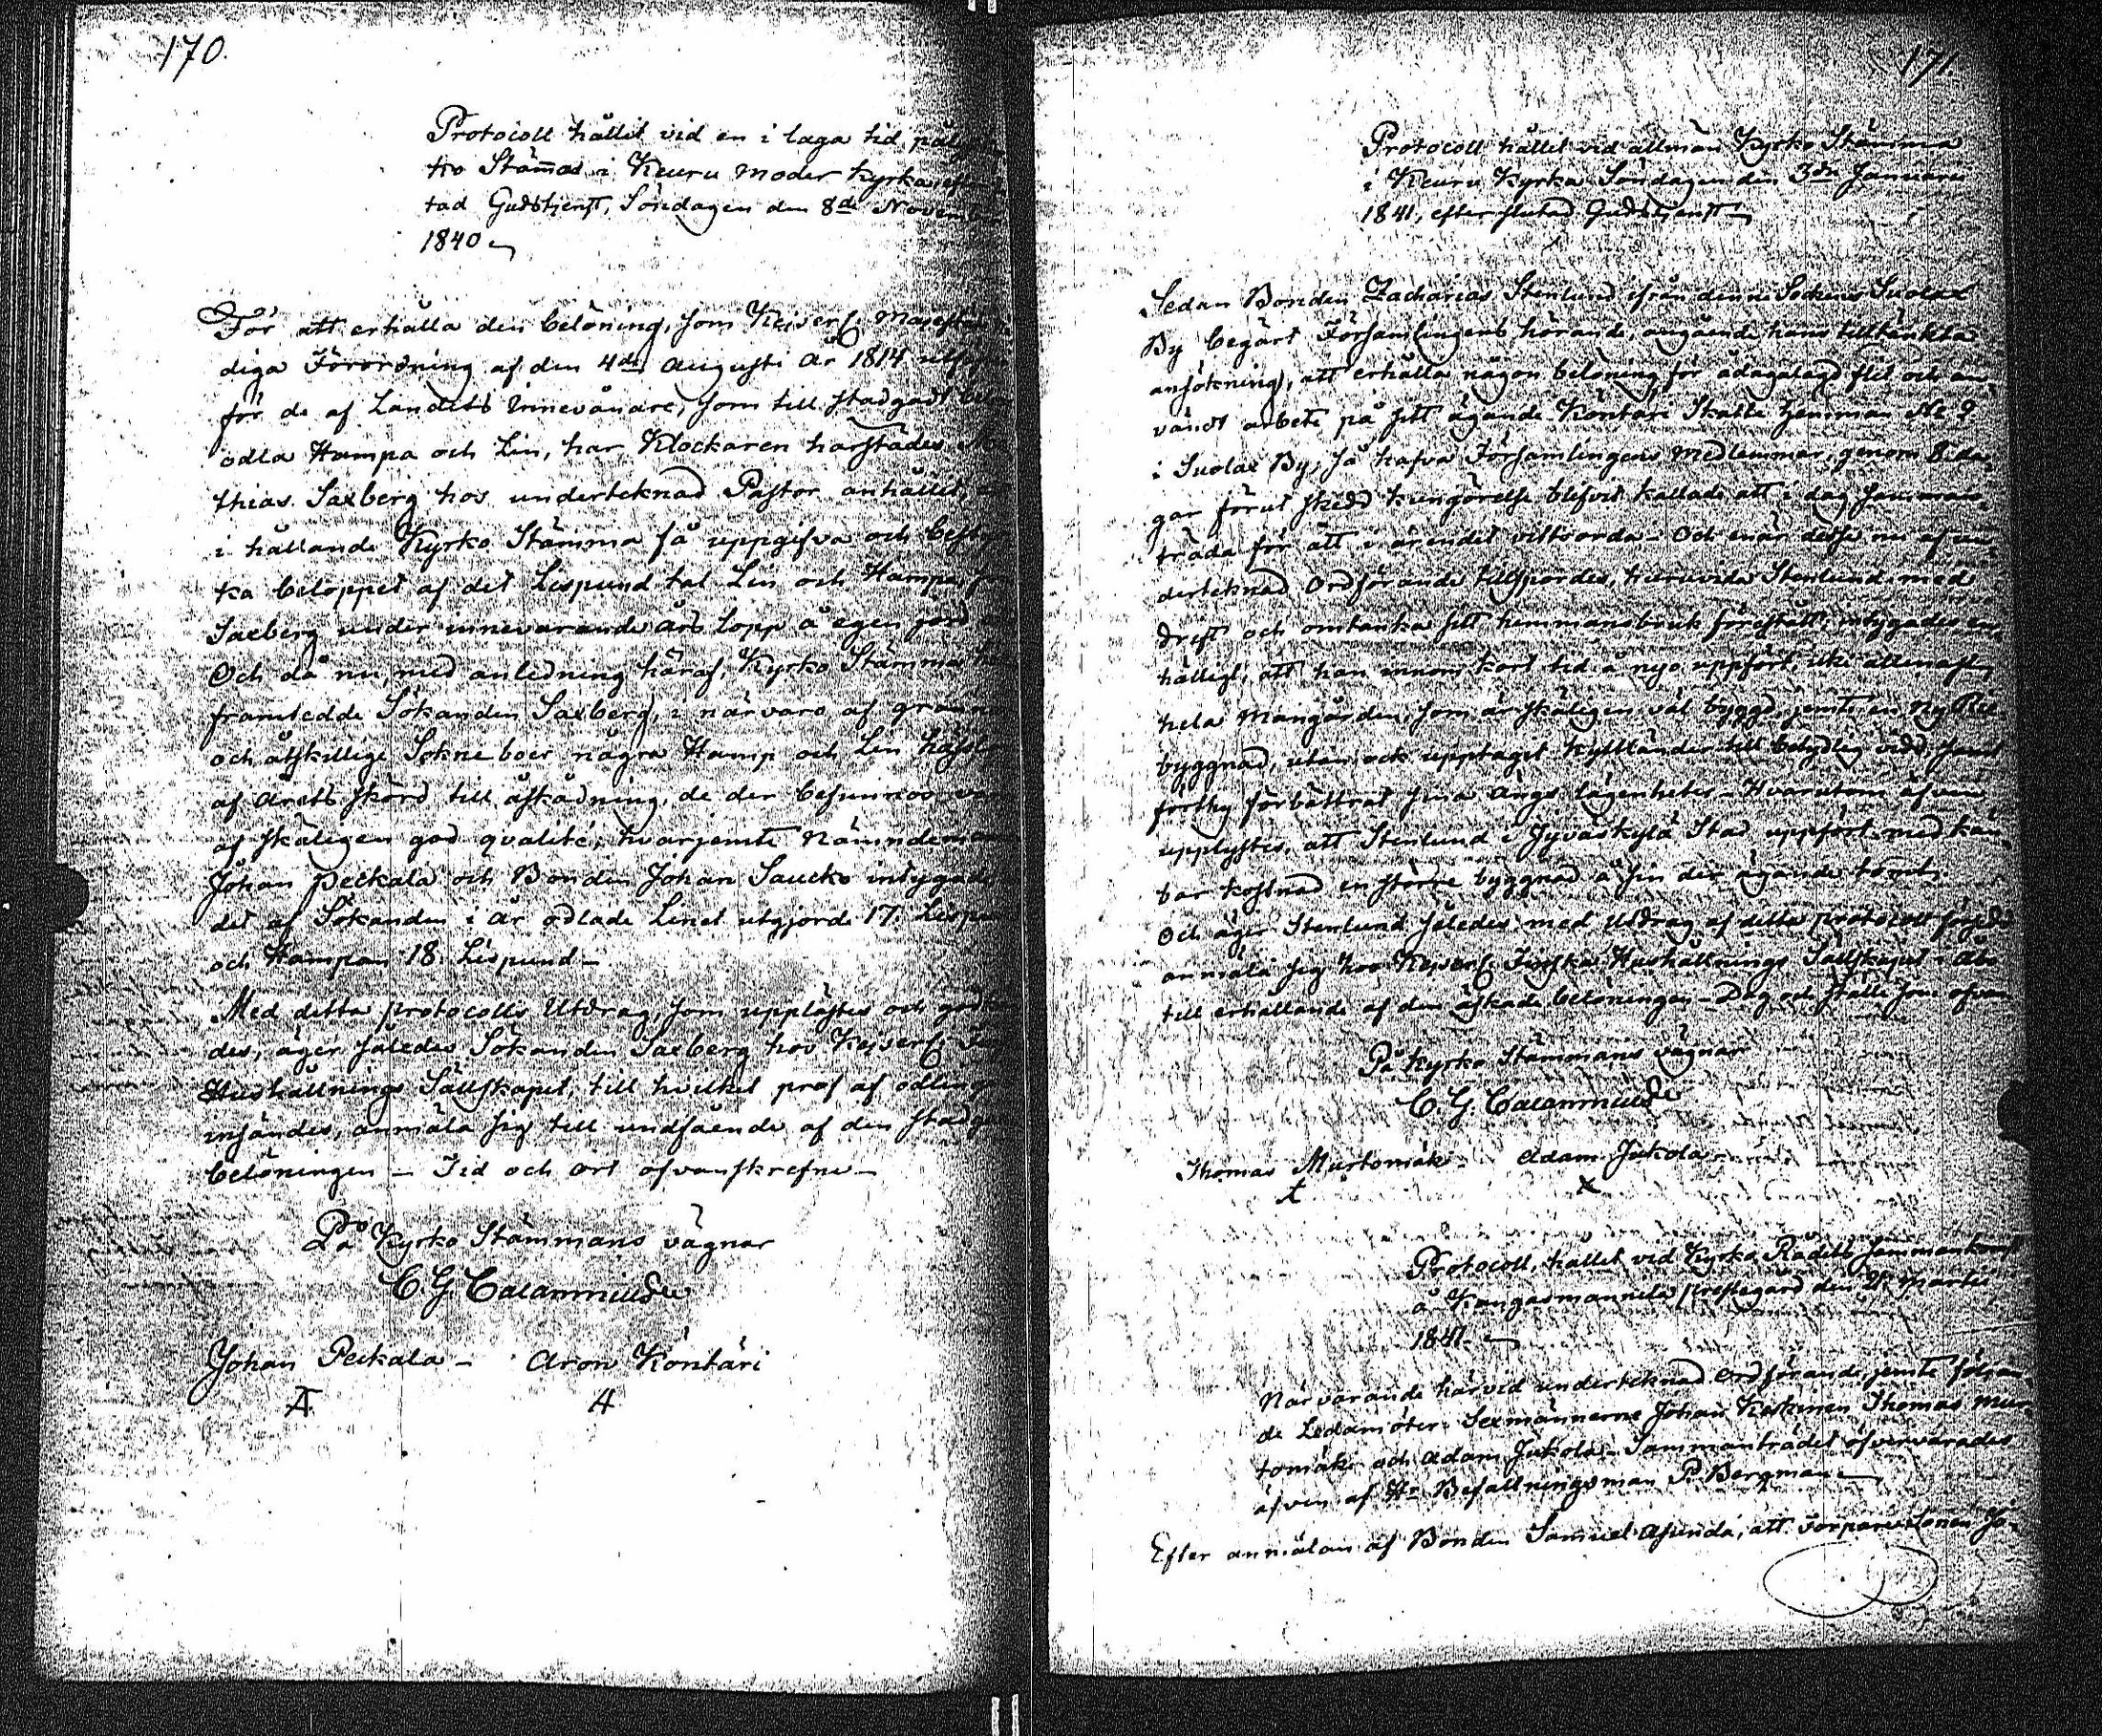 170.
Protocoll hållit vid en i laga tid
ko Stämma i Keuru Moder Kyrka
tad Gudstjenst, Söndagen den 8de November
1840
För att erhålla den belöning, som Kejserl. Majestäts
diga Förordning af den 4de Augusti År 1814
för de af Landets Innevånare, som till stadgadt
odla Hampa och Lin, har Klockaren härstädes
thias Saxberg hos underteknad Pastor anhållit,
i hållande Kyrko Stämma få uppgifva och
ka beloppet af det Lispund tal Lin och Hampa,
Saxberg under innevarande års lopp å egen jord
Och då nu, med anledning häraf, Kyrko Stämma
framtedde Sökanden Saxberg, i närvaro af
och åtskillige Sokneboer några Hamp och Lin
af årets skörd till åskådning, de der befunnos
af skäligen god qvalité, hvarjemte Nämndeman
Johan Peikala och Bonden Johan Saucko intygade
det af Sökanden i år odlade Linet utgjorde 17. Lispund
och Hampan 18. Lispund –
Med detta protocolls Utdrag, som upplästes och
des, äger således Sökanden Saxberg hos Kejserl.
Hushållnings Sällskapet, till hvilket prof af odlingen
insändes, anmäla sig till undfående af den
belöningen – Tid och ort ofvanskrefne –
På Kyrko Stämmans vägnar
C. G. Calamnius
Johan Peikala – Aron Köntäri
171.
Protocoll hållit vid allmän Kyrko Stämma
i Keuru Kyrka Söndagen den 3de Januarii
1841, efter slutad Gudstjenst
Sedan Bonden Zacharias Stenlund ifrån denne Sockens Suolax
By begärt Församlingens hörande, angående hans tilltänkta
ansökning, att erhålla någon belöning för ådagalagd flit och an-
vändt arbete på sitt ägande Köntäri Skatte hemman No 9
i Suolax By, så hafva Församlingens Medlemmar, genom 8 da-
gar förut skedd kungörelse blifvit kallade att i dag samman-
träda för att i ärendet vittsorda – Och enär desse nu af un-
derteknad Ordförande tillspordes, huruvida Stenlund med
drift och omtanka sitt hemmansbruk förestått, intygades en-
hälligt, att han innom kort tid å nyo uppfört, icke allenast
hela Mangården, som är skäligen väl byggd, jemte en ny Rie
byggnad, utan ock upptagit Kyttländer till betydlig vidd, samt
förthy förbättrat sina ängs lägenheter – Hvarutom äfven
upplystes, att Stenlund i Jyväskylä Stad uppfört med kän-
bar kostnad en större byggnad å sin der ägande tomt.
Och äger Stenlund således med Utdrag af detta protocoll
anmäla sig hos Kejserl. Finska Hushållnings Sällskapet i Åbo
till erhållande af den äskade belöningen – Dag och ställe som ofvan
På Kyrko Stämmans vägnar
C. G. Calamnius
Thomas Murtomäki – Adam Jukola –
Protocoll, hållit vid Kyrko Rådets sammankomst
å Kangasmannila prestegård den Martii
1841.
Närvarande härvid underteknad Ordförande, jemte följan-
de Ledamöter: Sexmännerne Johan Keskinen, Thomas Mur-
tomäki och Adam Jukola – Sammanträdet öfvervarades
äfven af Hr Befallningsman P. Bergman
Efter anmälan af Bonden Samuel Asunda, att Torpare Sonen Jo-